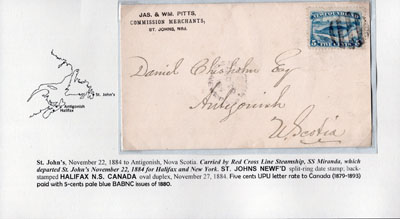 JAS. & WM. PITTS,
COMMISSION MERCHANTS,
ST. JOHNS, Nfld.
NEWFOUNDLAND
5 FIVE CENTS 5
Daniel Chisholm Esq
Antigonish
N Scotia
St. John's
Antigonish
Halifax
St. John's, November 22, 1884 to Antigonish, Nova Scotia. Carried by Red Cross Line Steamship, SS Miranda, which
departed St. John's November 22, 1884 for Halifax and New York. ST. JOHNS NEWF'D split-ring date stamp; back-
stamped HALIFAX N.S. CANADA oval duplex, November 27, 1884. Five cents UPU letter rate to Canada (1879-1893)
paid with 5-cents pale blue BABNC issues of 1880.